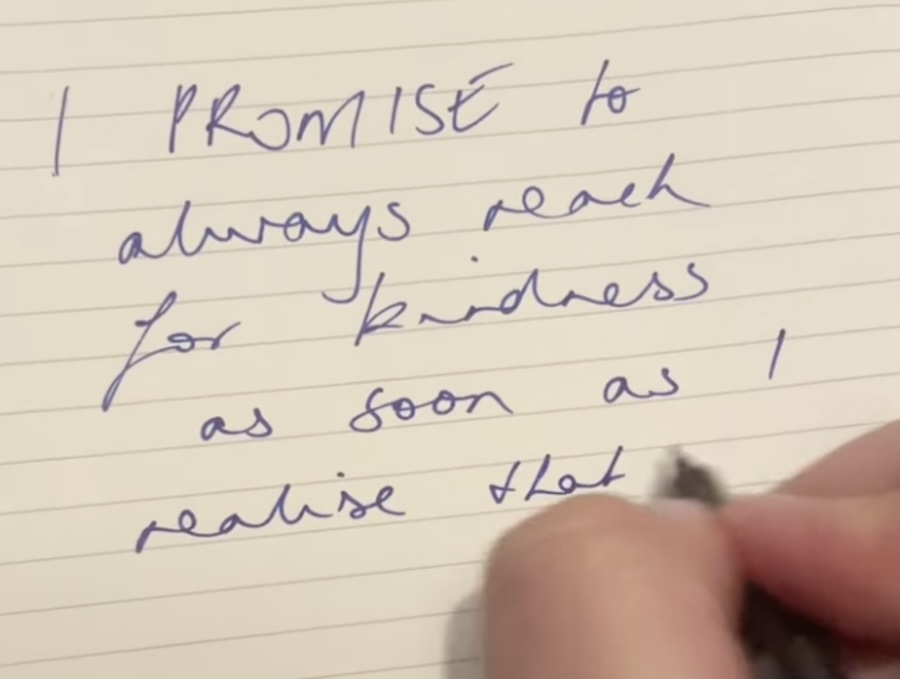 I PROMISE to
always reach
for kindness
as soon as I
realise that